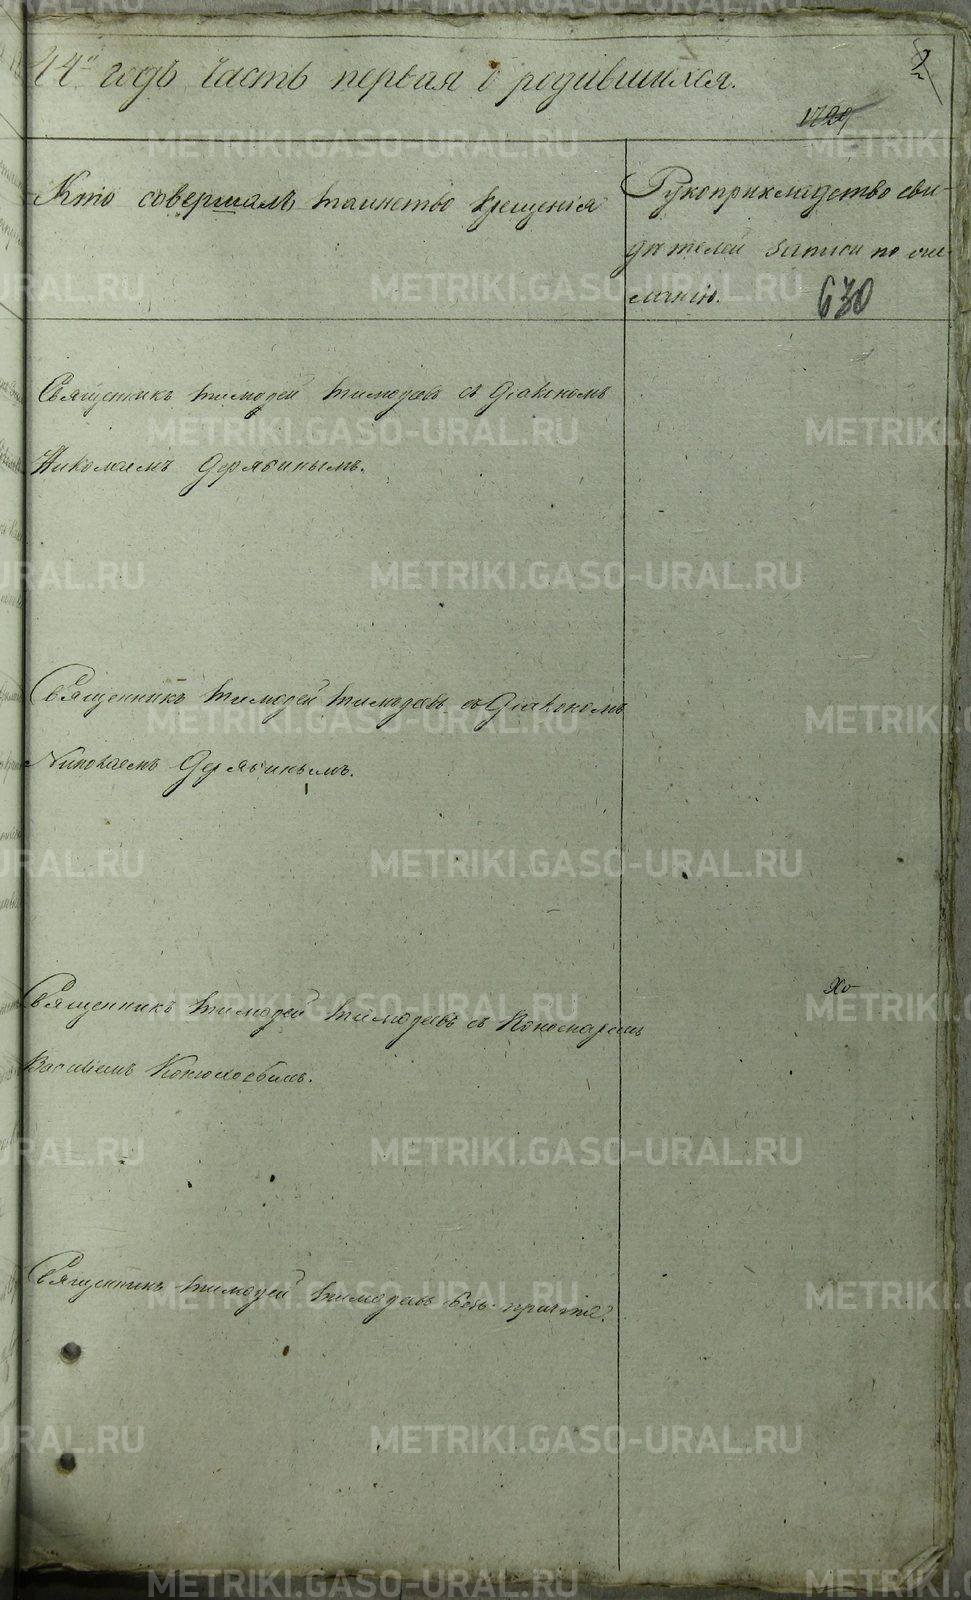 44й годъ часть первая о родившихся.
2
1729
Кто совершалъ таинство крещенія
Рукоприкладство сви-
дѣтелей записи по
желанію.
630
Священникъ Тимоѳей Тимоѳеевъ съ Діакономъ
Николаемъ Дерябинымъ.
Священникъ Тимоѳей Тимоѳеевъ съ Діакономъ
Николаемъ Дерябинымъ.
Священникъ Тимоѳей Тимоѳеевъ съ Пономаремъ
Василіемъ Конюховымъ.
Священникъ Тимоѳей Тимоѳеевъ безъ причта.
METRIKI.GASO-URAL.RU